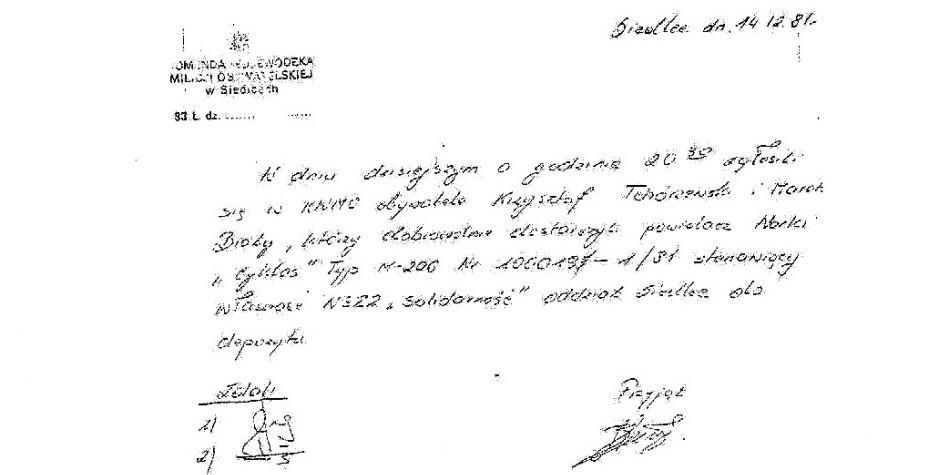 Siedlce dn. 14.12.81r.
KOMENDA WOJEWÓDZKA
MILICJI OBYWATELSKIEJ
w Siedlcach
L. dz. ......
W dniu dzisiejszym o godzinie 20 zgłosili
się w KWMO obywatele Krzysztof Tchórzewski i Marek
Biały, którzy dobrowolnie dostarczyli powielacz Marki
„Cyklos" Typ M-206 Nr 1/81 stanowiący
własność NSZZ „Solidarność" oddział Siedlce do
depozytu.
Zdali
Przyjął
1)
2)